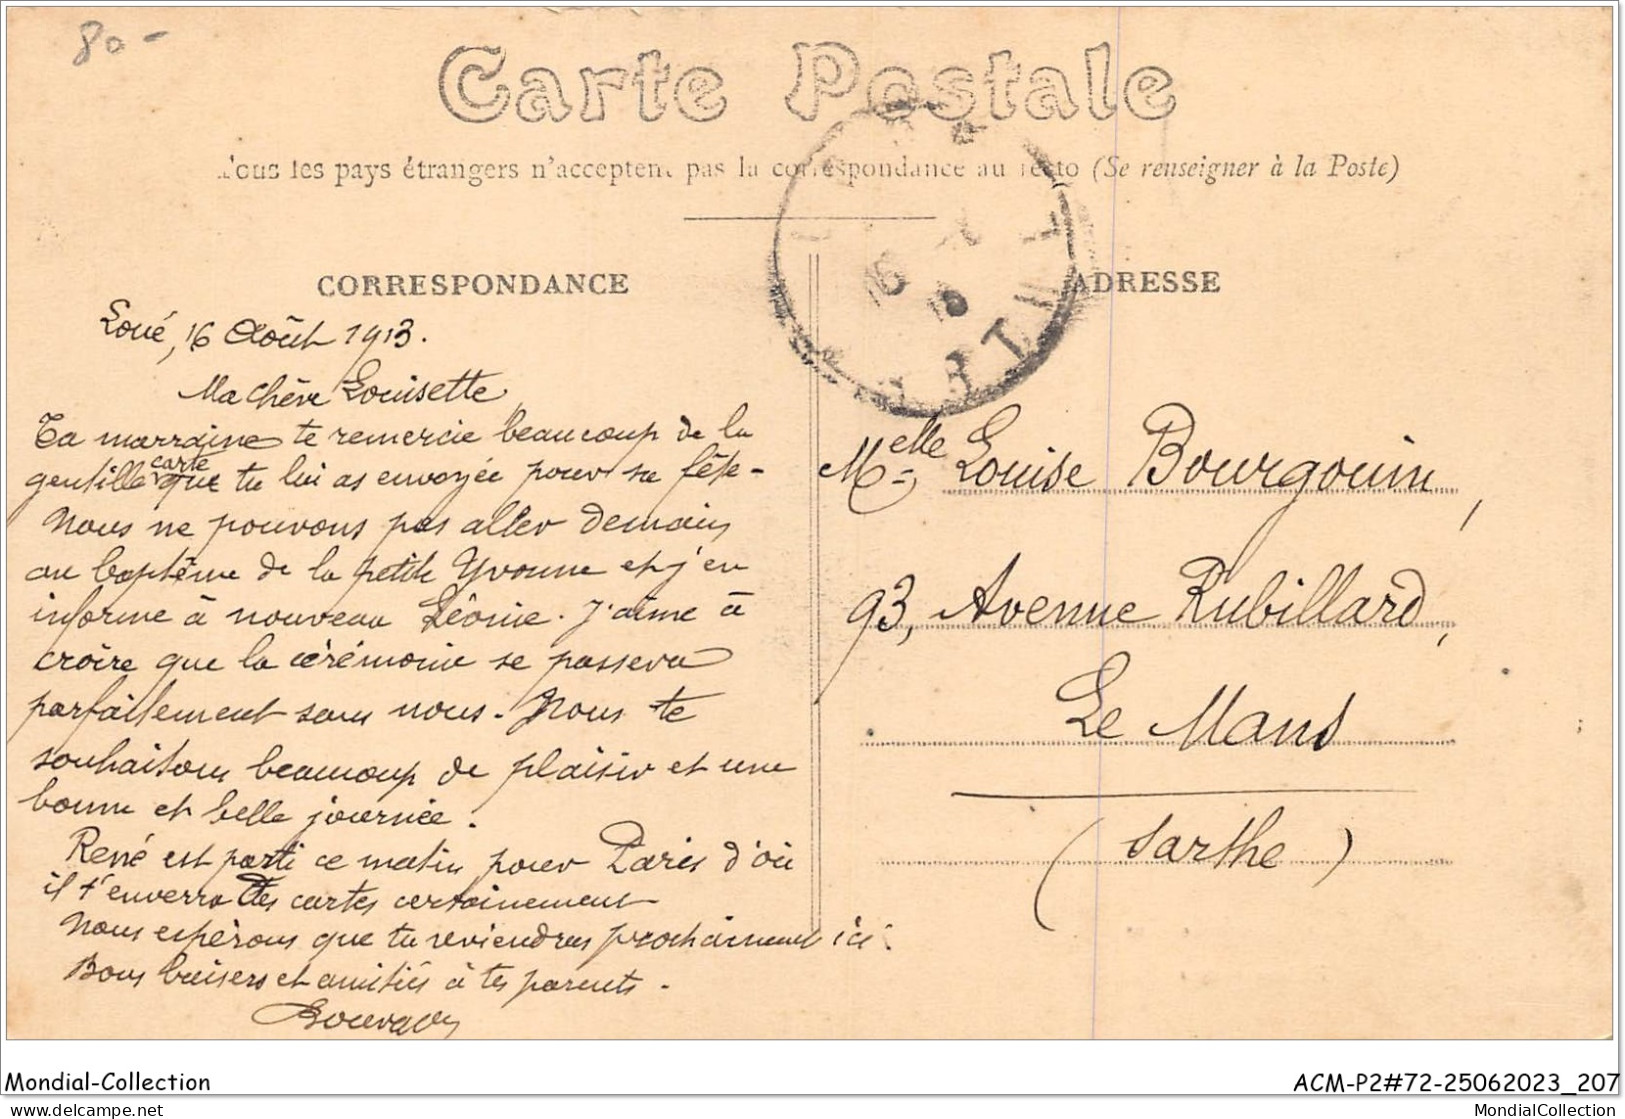 80-
Carte Postale
Tous les pays étrangers n'acceptent pas la correspondance au recto (Se renseigner à la Poste)
CORRESPONDANCE
Loué, 16 Août 1913.
Ma chère Louisette,
Ta marraine te remercie beaucoup de la
gentille carte que tu lui as envoyée pour sa fête-
Nous ne pouvons pas aller demain
au baptême de la petite Yvonne et j'en
informe à nouveau Léonie. J'aime à
croire que la cérémonie se passera
parfaitement sans nous. Nous te
souhaitons beaucoup de plaisir et une
bonne et belle journée.
René est parti ce matin pour Paris d'où
il t'enverra des cartes certainement
Nous espérons que tu reviendras prochainement ici.
Bons baisers et amitiés à tes parents.
ADRESSE
Melle Louise Bourgouin,
93, Avenue Rubillard,
Le Mans
(Sarthe)
Mondial-Collection
ACM-P2#72-25062023_207
delcampe.net
MondialCollection